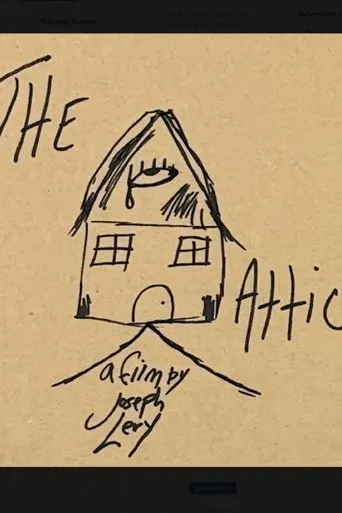 THE
Attic
a film by
Joseph
Lery